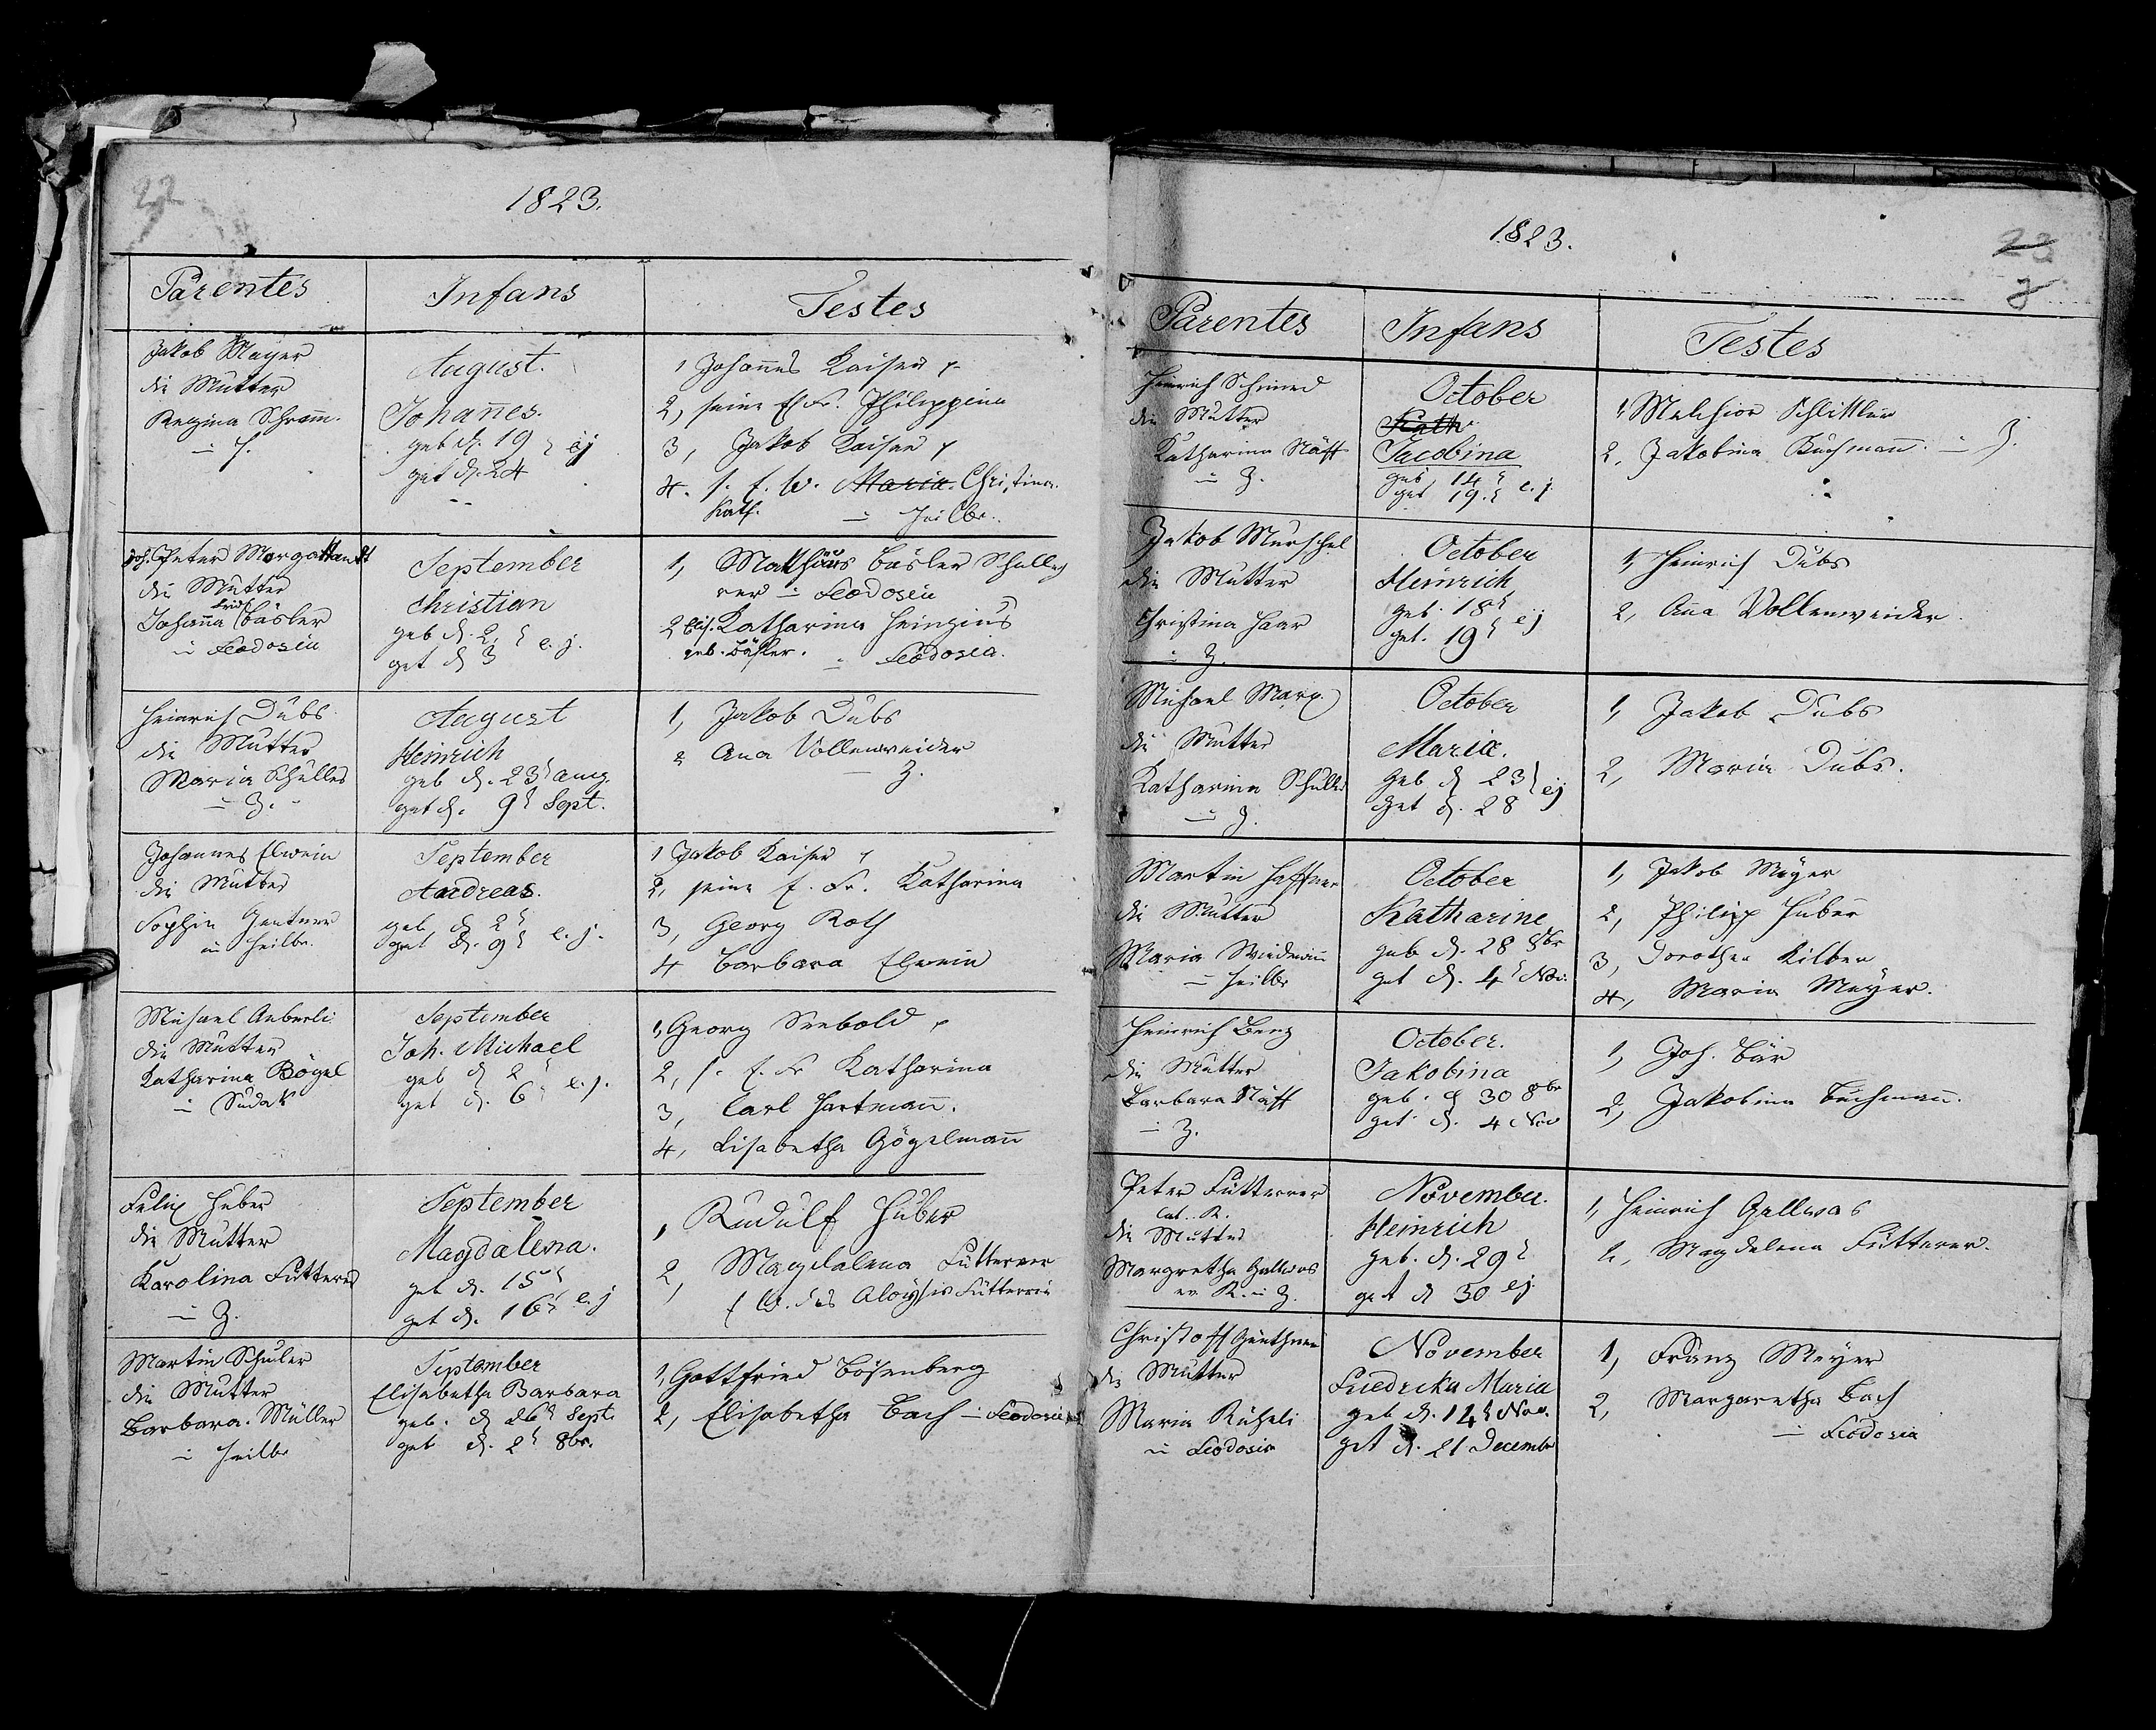 22
1823.
Parentes Infans Testes
Jakob Mayer
die Mutter
Regina Schramm.
August.
Johannes.
geb d. 19 ej
get d. 24
1 Johannes Kaiser
2, seine E. Fr. Philippina
3, Jakob Kaiser
4. s. E. W. Maria Christina.
Kath. Heilbr.
Joh. Peter
die Mutter
Johanna Frid. Bäsler
in Feodosia
September
Christian
geb d. 2. e. j.
get d 3
1, Mathäus Bäsler
in Feodosia
2 Elis. Katharina Heinzius
geb. Bäsler. in Feodosia.
Heinrich Dubs
die Mutter
Maria Schuller
in Z.
August
Heinrich
geb d. 23 aug
get d. 9 Sept.
1, Jakob Dubs
2 Ana Vollenweider
Z.
Johannes Elwein
die Mutter
Sophia Gentner
in Heilbr.
September
Andreas.
geb d 2
get d. 9 e. j.
1 Jakob Kaiser
2, seine E. Fr. Katharina
3, Georg Roth
4 Barbara Elwein
Michael Aeberli
die Mutter
Katharina Bögel
in Sudak
September
Joh. Michael
geb d 2
get d. 6 e. j.
1, Georg Seebold
2, s. E. Fr Katharina
3, Carl Hartmann.
4, Lisabetha Gögelmann
Felix Huber
die Mutter
Karolina Futterer
in Z.
September
Magdalena.
geb d. 15
get d. 16 e. j
1, Rudulf Huber
2, Magdalena Futterer
E. W. des Aloysis
Martin Schuler
die Mutter
Barbara. Müller
in Heilbr
September
Elisabetha Barbara
geb. d 26 Sept.
get d. 2 8br.
1, Gottfried Bösenberg
2, Elisabetha Bach in Feodosia
1823.
23
Parentes Infans Testes
Heinrich Schmied
die Mutter
Katharina Näff
in Z.
October
Kath
Jacobina
geb 14
get 19. e. j.
1, Melchior Schlittler
2, Jakobina Buchmann. in Z.
Jakob Murschel
die Mutter
Christina Haar
in Z.
October
Heinrich
geb. 18 ej
get. 19
1, Heinrich Dubs
2, Ana Vollenweider.
Michael Marx
die Mutter
Katharina Schuller
in Z.
October
Maria.
geb d 23 ej
get d. 28
1, Jakob Dubs
2, Maria Dubs.
Martin Haffner
die Mutter
Maria Wiedmann
in Heilbr
October
Katharine
geb d. 28 8br
get d. 4 Nov.
1, Jakob Meyer
2, Philipp Huber
3, Dorothea Kilber
4, Maria Meyer.
Heinrich Benz
die Mutter
Barbara Näff
in Z.
October.
Jakobina
geb. d 30 8br
get d. 4 Nov
1, Joh. Bär
2, Jakobina Buchmann.
Peter Futterer
Cat. R.
die Mutter
Margretha Gallwas
ev. R. in Z.
November.
Heinrich
geb. d. 29
get d 30 ej.
1, Heinrich Gallwas
2, Magdalena Futterer.
Christoff Günthner
die Mutter
Maria
in Feodosia
November
Friedrika Maria
geb d. 14 Nov.
get d. 21 Decembr
1, Franz Meyer
2, Margaretha Bach
in Feodosia